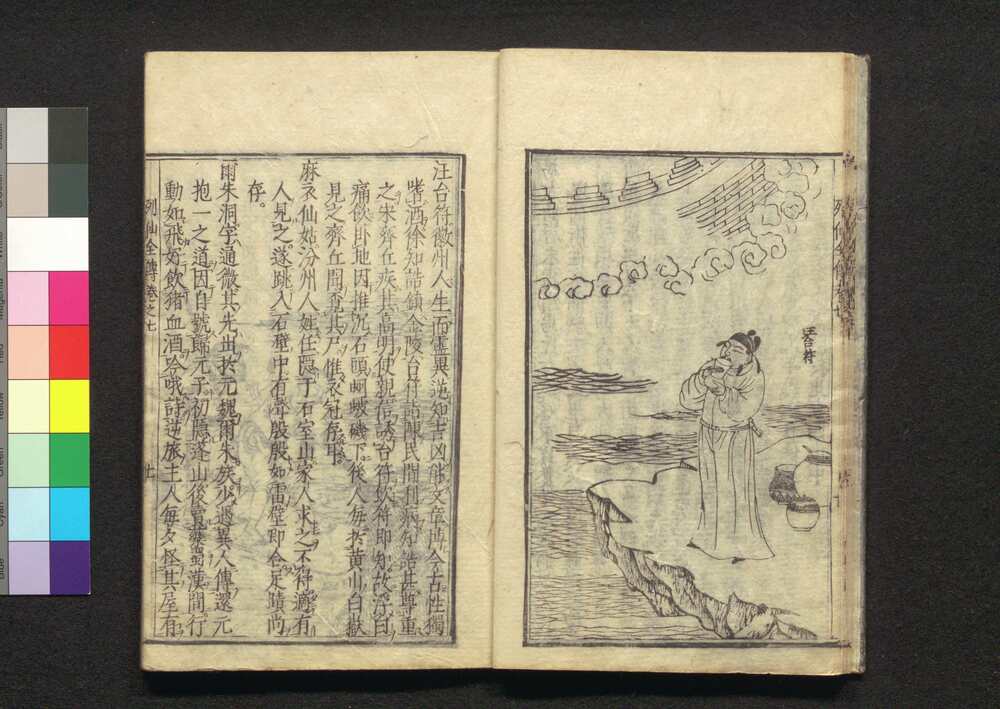 汪台符
汪台符徽州人生而靈異逆知吉凶能文章博今古性獨
嗜酒徐知誥鎮金陵台符詣陳民間利病知誥甚尊重
之宋齊丘疾其高明使親信誘台符飲符即知故浮白
痛飲卧地因推沉石頭蚵蚾磯下後人每於黃山白嶽
見之齊丘聞啓其尸惟衣冠存耳
麻衣仙姑汾州人姓任隱于石室山家人求之不得適有
人見之遂跳入石壁中有聲殷殷如雷壁即合足蹟尚
存。
爾朱洞字通微其先出於元魏爾朱族少遇異人傳還元
抱一之道因自號歸元子初隱蓬山後賣藥蜀漢間行
動如飛好飲猪血酒吟哦詩逆旅主人每夕怪其屋有
列仙全傳卷之七